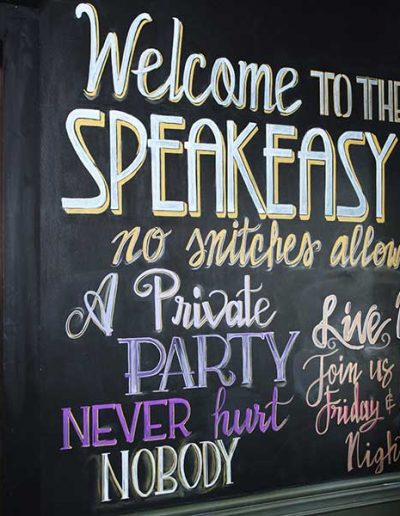 Welcome TO THE
SPEAKEASY
no snitches allow
A Private
PARTY
NEVER hurt
NOBODY
Live
Join us
Friday &
Nigh